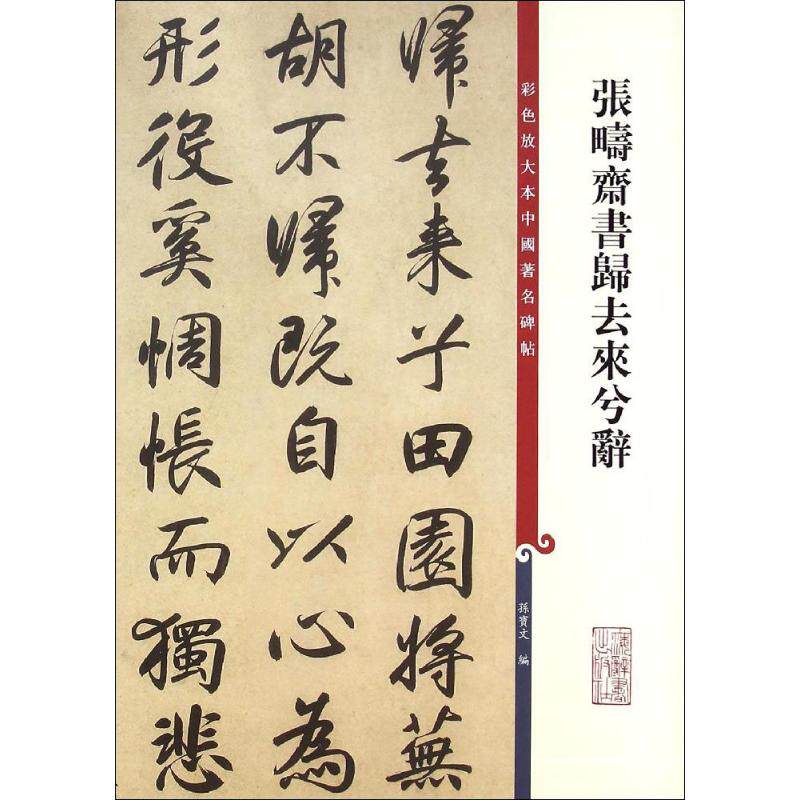 張疇齋書歸去來兮辭
彩色放大本中國著名碑帖
孫寶文 編
歸去来兮田園将蕪
胡不歸既自以心為
形役奚惆悵而獨悲